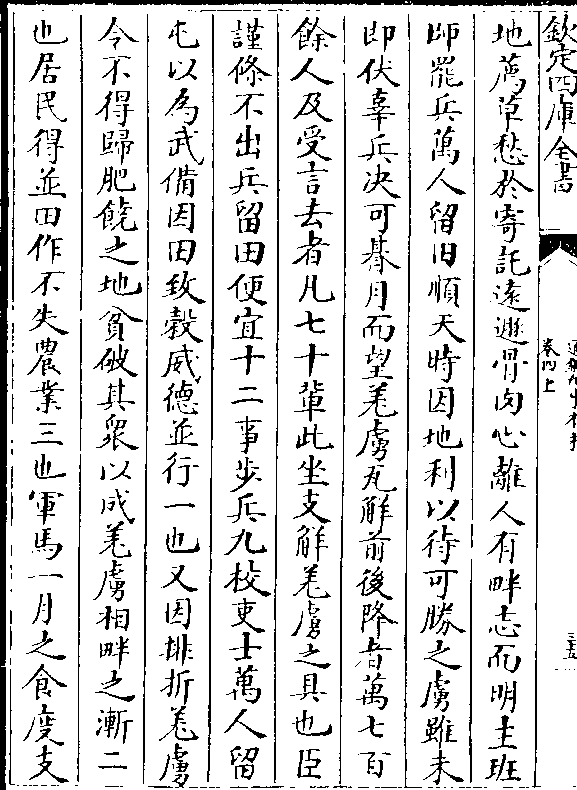 欽定四庫全書
卷四上
地薦草愁於寄託遠遯骨肉心離人有畔志而明主班
師罷兵萬人留田順天時因地利以待可勝之虜雖未
即伏辜兵决可朞月而望羌虜瓦解前後降者萬七百
餘人及受言去者凡七十輩此坐支解羌虜之具也臣
謹條不出兵留田便宜十二事步兵九校吏士萬人留
屯以為武備因田致穀威德並行一也又因排折羌虜
令不得歸肥饒之地貧破其衆以成羌虜相畔之漸二
也居民得並田作不失農業三也軍馬一月之食度支